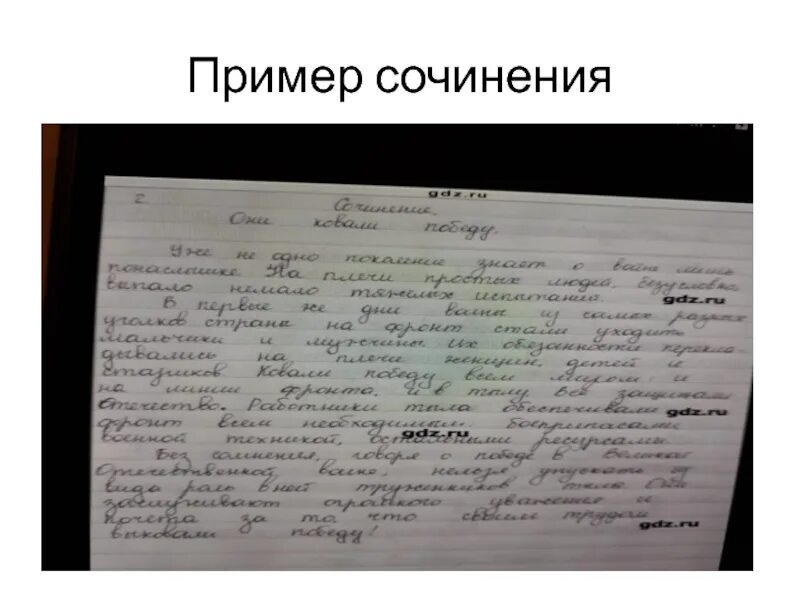 Пример сочинения
gdz.ru
2. Сочинение.
Они ковали победу.
Уже не одно поколение знает о войне лишь
понаслышке. На плечи простых людей, безусловно,
выпало немало тяжелых испытаний. gdz.ru
В первые же дни войны из самых разных
уголков страны на фронт стали уходить
мальчики и мужчины. Их обязанности перекла-
дывались на плечи женщин, детей и
стариков. Ковали победу всем миром: и
на линии фронта, и в тылу. Все защищали
Отечество. Работники тыла обеспечивали gdz.ru
фронт всем необходимым: боеприпасами,
gdz.ru
военной техникой, остальными ресурсами.
Без сомнения, говоря о победе в Великой
Отечественной войне, нельзя упускать из
вида роль в ней тружеников тыла. Они
заслуживают огромного уважения и
почета за то, что своим трудом gdz.ru
выковали победу!